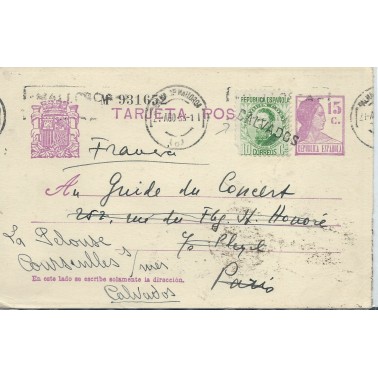 MALLORCA
Nº 931652
TARJETA POS
REPUBLICA ESPAÑOLA
10 CORREOS
CALVADOS
15
C.
REPUBLICA ESPAÑOLA
Au Guide du Concert
252, rue du Fbg St Honoré
Pleyel
Paris
La Pelouse
Courseulles s/ mer
Calvados
En este lado se escribe solamente la dirección.